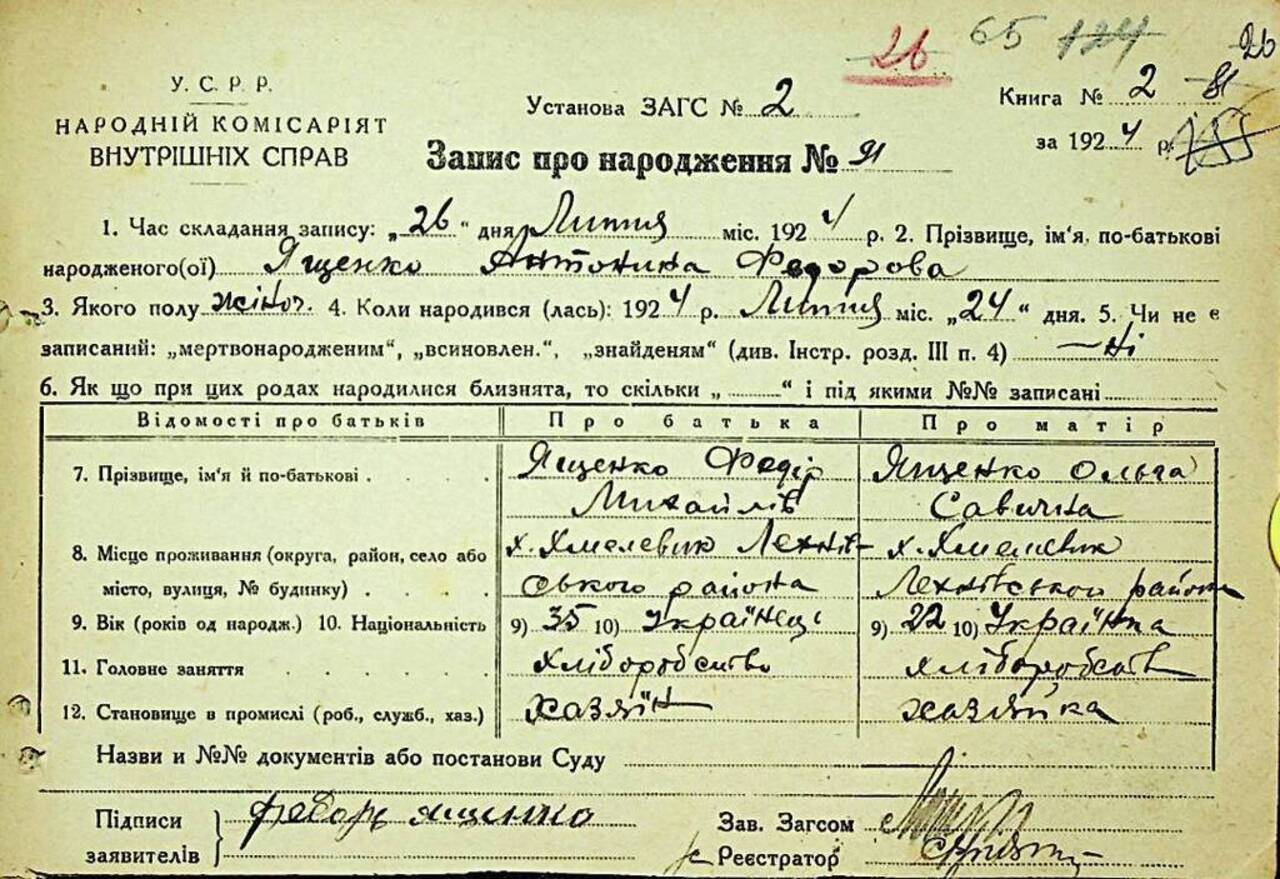 26 65 124 26
У. С. Р. Р.
НАРОДНІЙ КОМІСАРІЯТ
ВНУТРІШНІХ СПРАВ
Установа ЗАГС № 2
Книга № 2 81
за 1924 р.
Запис про народження № 91
1. Час складання запису: „26“ дня Липня міс. 1924 р. 2. Прізвище, ім'я, по-батькові
народженого(ої) Ященко Антонина Федорова
3. Якого полу жіноч. 4. Коли народився (лась): 1924 р. Липня міс. „24“ дня. 5. Чи не є
записаний: „мертвонародженим“, „всиновлен.“, „знайденям“ (див. Інстр. розд. III п. 4) — ні
6. Як що при цих родах народилися близнята, то скільки „ “ і під якими №№ записані
Відомості про батьків Про батька Про матір
7. Прізвище, ім'я й по-батькові Ященко Федір Ященко Ольга
Михайлів Савична
8. Місце проживання (округа, район, село або х. Хмелевик Лехнів- х. Хмелевик
місто, вулиця, № будинку) ського района Лехнівського района
9. Вік (років од народж.) 10. Національність 9) 35 10) Українець 9) 22 10) Українка
11. Головне заняття хліборобство хліборобств
12. Становище в промислі (роб., служб., хаз.) хазяїн хазяйка
Назви и №№ документів або постанови Суду
Підписи
заявителів
федорь ященко
Зав. Загсом
Реєстратор